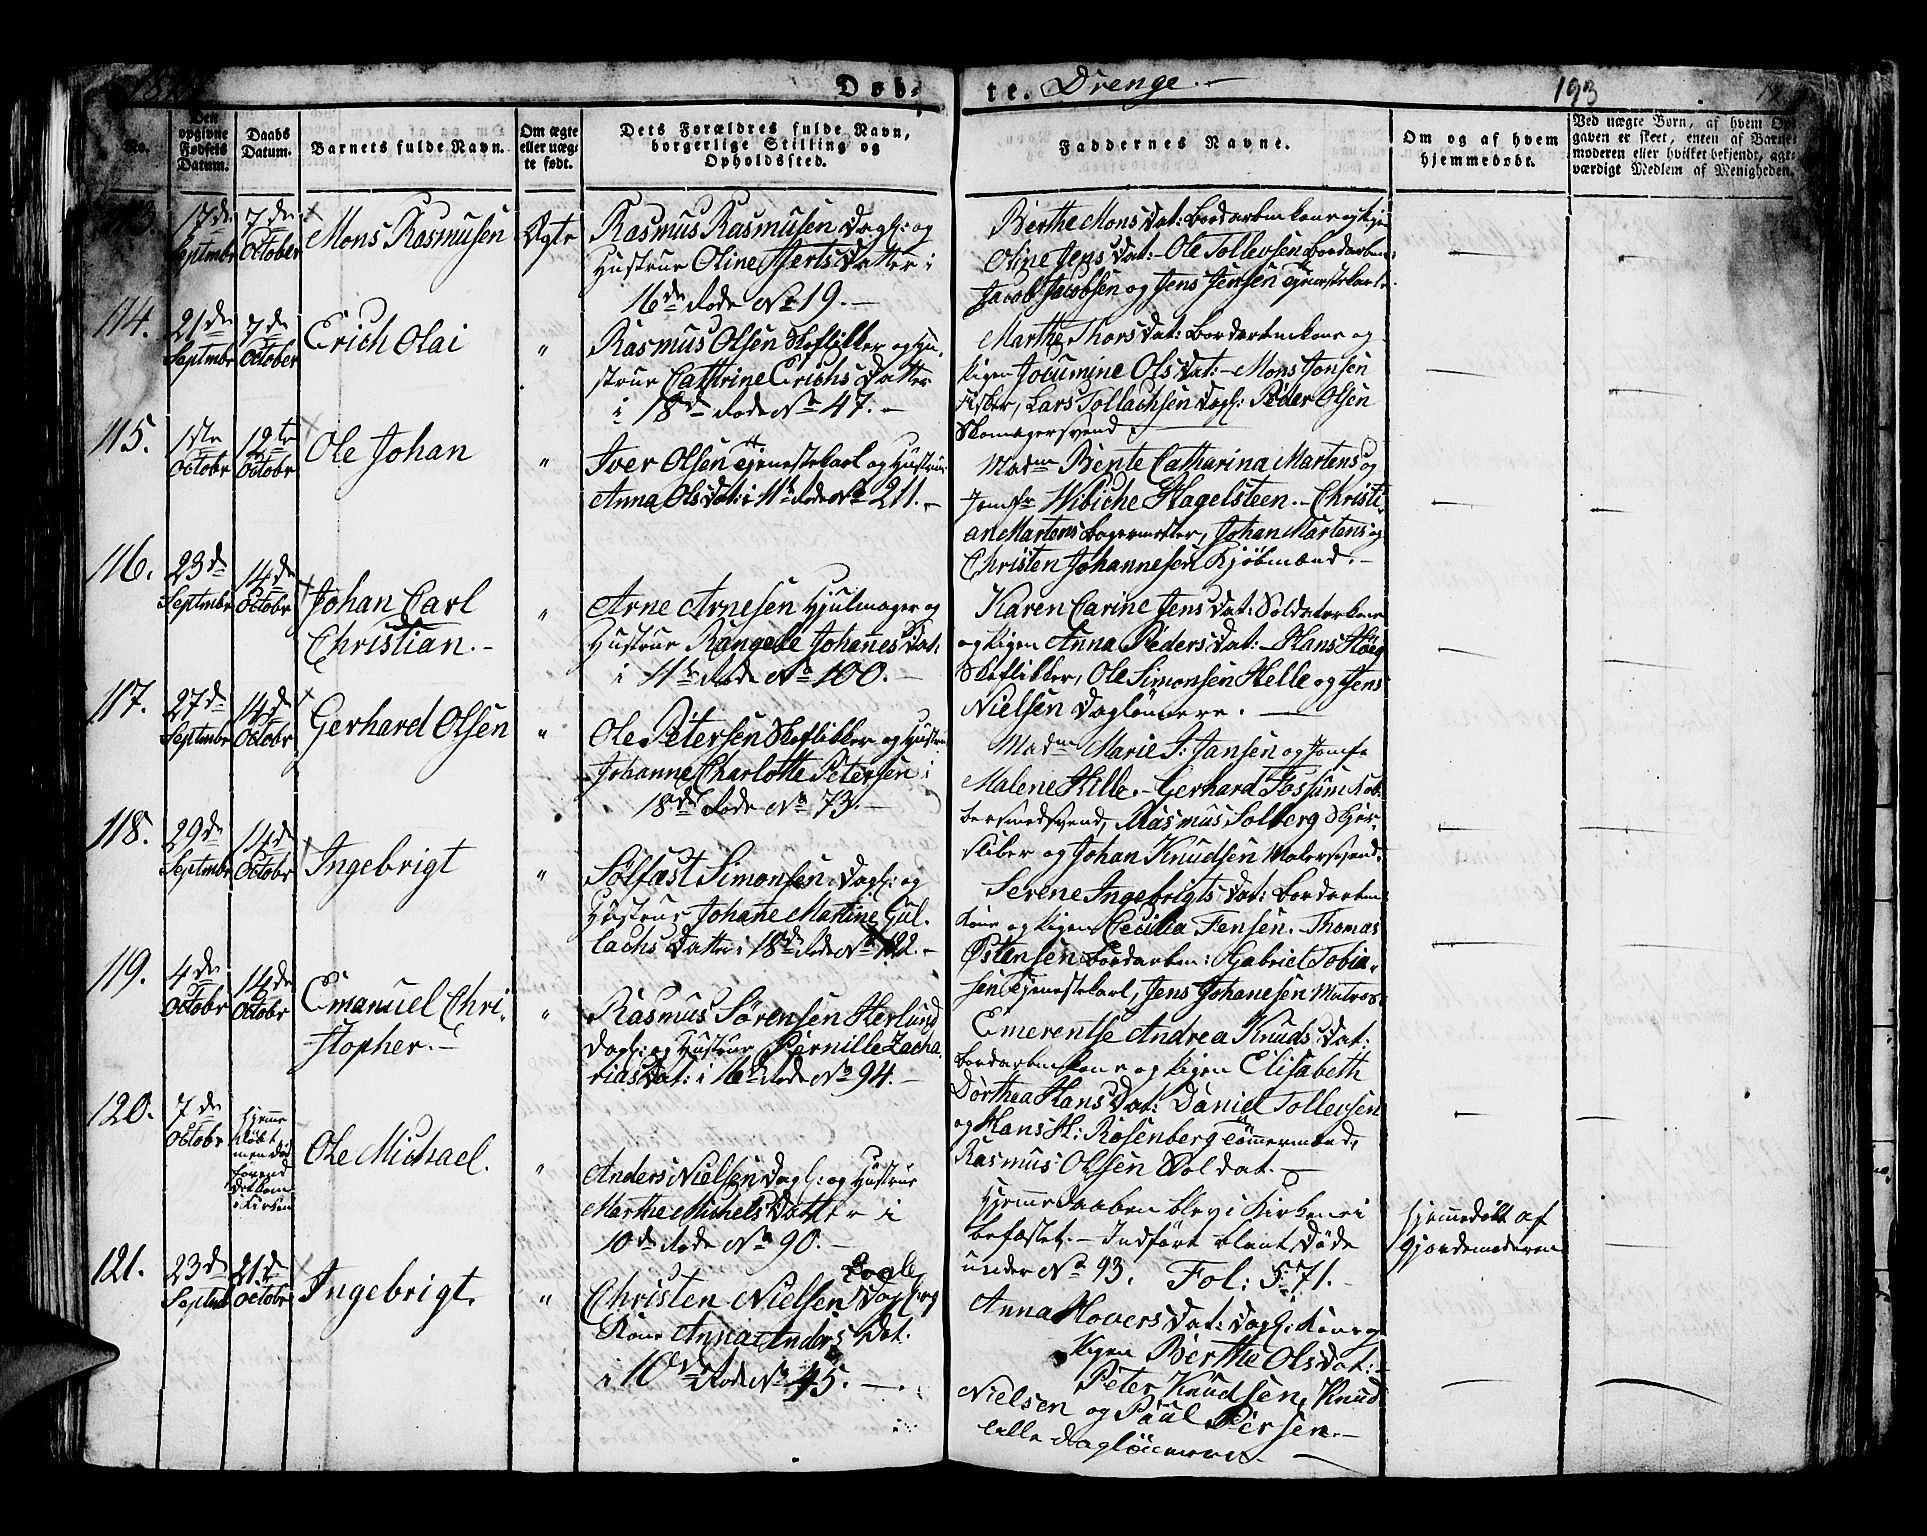 Døb-
te. Drenge.-
193
No.
Den opgivne Fødsels Datum.
Daabs Datum.
Barnets fulde Navn.
Om ægte eller uægte født.
Dets Forældres fulde Navn, borgerlige Stilling og Opholdssted.
Faddernes Navne.
Om og af hvem hjemmedøbt.
Ved uægte Børn, af hvem Opgaven er skeet, enten af Barnemoderen eller hvilket bekjendt, agtværdigt Medlem af Menigheden.
113.
17de Septmbr
7de October
Mons Rasmusen
Ægte
Rasmus Rasmusen Dagl: og
Hustrue Oline Hjerts Datter i
16de Rode No 19.-
Berthe Mons Dat: Bordarb
Oline Jens Dat:- Ole Tollevsen Bordarb
Jacob Jacobsen og Jens Jensen Tjenestekarle
114.
21de Septmbr
7de October
Erich Olai
"
Rasmus Olsen Skoflikker og Hu-
strue Cathrine Erichs Datter
i 18de Rode No 47.-
Marthe Thors Dat: Bordarb kone og
Pigen Jocumine Ols Dat:- Mons Jonsen
Fisker, Lars Tollachsen Dagl: Peder Olsen
Skomagersvend.
115.
1ste Octobr
12te Octobr
Ole Johan
"
Iver Olsen Tjenestekarl og Hustrue
Anna Ols Dat: i 11te Rode No 211.-
Madme Bente Catharina Martens og
Jomfr Wibiche Hagelsteen.- Christi-
an Martens Bagermester, Johan Martens og
Christen Johannesen Kjøbmænd.-
116.
23de Septmbr
14de Octobr
Johan Carl
Christian.-
"
Arne Arnesen Hjulmager og
Hustrue Rangele Johannes Dat.
i 11te Rode No 100.-
Karen Carine Jens Dat: Soldaterkone
og Pigen Anna Peders Dat:- Hans Høeg
Skoflikker, Ole Simonsen Helle og Jens
Nielsen Daglønnere.
117.
27de Septmbr
14de Octobr
Gerhard Olsen
"
Ole Petersen Skoflikker og Hustrue
Johanne Charlotte Petersen i
18de Rode No 73.-
Madme Marie J: Jansen og Jomfr
Malene Hille.- Gerhard Fossum Kob-
bersmedsvend, Rasmus Solberg Skjor-
og Johan Knudsen Malersvend.
118.
29de Septmbr
14de Octobr
Ingebrigt
"
Sølfæst Simonsen Dagl: og
Hustrue Johane Martine Gul-
lachs Datter i 18de Rode No 122.-
Serene Ingebrigts Dat: Bordarb
kone og Pigen Cecilia Jensen. Thomas
Østensen Bordarb: Gabriel Tobia-
sen Tjenestekarl, Jens Johanesen Matros
119.
4de Octobr
14de Octobr
Emanuel Chri-
stopher.-
"
Rasmus Sørensen Herlund
Dagl: og Hustrue Pernille Zacha-
rias Dat: i 16de Rode No 94.-
Emerentse Andrea Knuds Dat:
Bordarb kone og Pigen Elisabeth
Dorthea Hans Dat: Daniel Tollevsen
og Hans H: Rosenberg Tømmermænd,
Rasmus Olsen Soldat.-
120.
7de Octobr
hjemme døbt men død forend det kom i Kirken
Ole Michael.
"
Anders Nielsen Dagl: og Hustrue
Marthe Michels Datter i
10de Rode No 90.-
Hjemmedaaben blev i Kirken ei
befæstet.- Indført blant Døde
under No 93. Fol: 571.-
hjemmedøbt af
Gjordemoderen
121.
23de Septmb
21de Octobr
Ingebrigt.
"
Christen Nielsen Dagl: og
Kone Anna Anders Dat.
i 10de Rode No 45.-
Anna Hovers Dat: Dagl: Kone og
Pigen Berthe Ols Dat:-
Peter Knudsen, Knud
Nielsen og Paul Persen.-
alle Daglønnere.